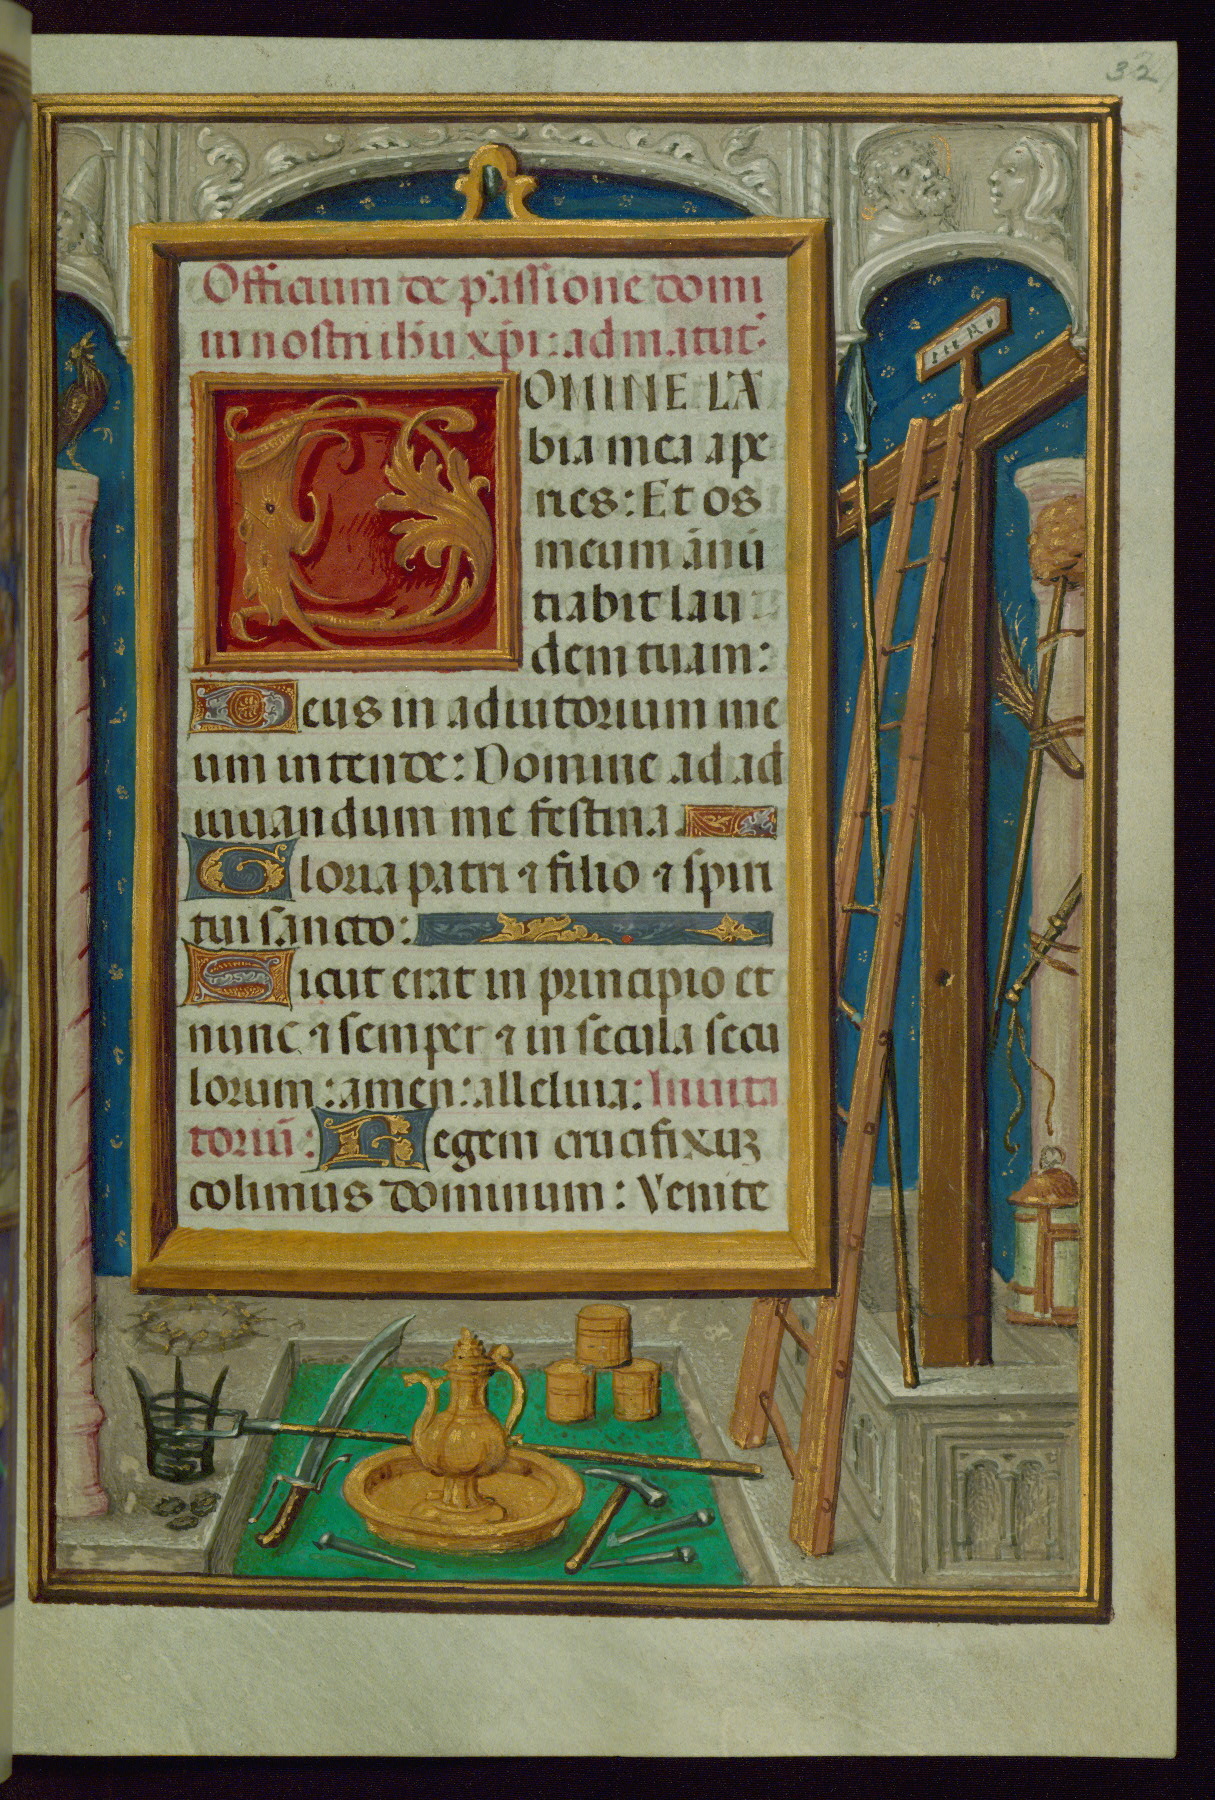 32
Officium de passione domi
ni nostri ihū xp̄i: ad matut᷑
DOMINE LA
bia mea ape
ries: Et os
meum ānū
tiabit lau
dem tuam:
Deus in adiutorium me
um intende: Domine ad ad
iuuandum me festina
Gloria patri ⁊ filio ⁊ spiri
tui sancto:
Sicut erat in principio et
nunc ⁊ semper ⁊ in secula secu
lorum: amen: alleluia: Inuita
toriū: Regem crucifixuꝫ
colimus dominum: Venite